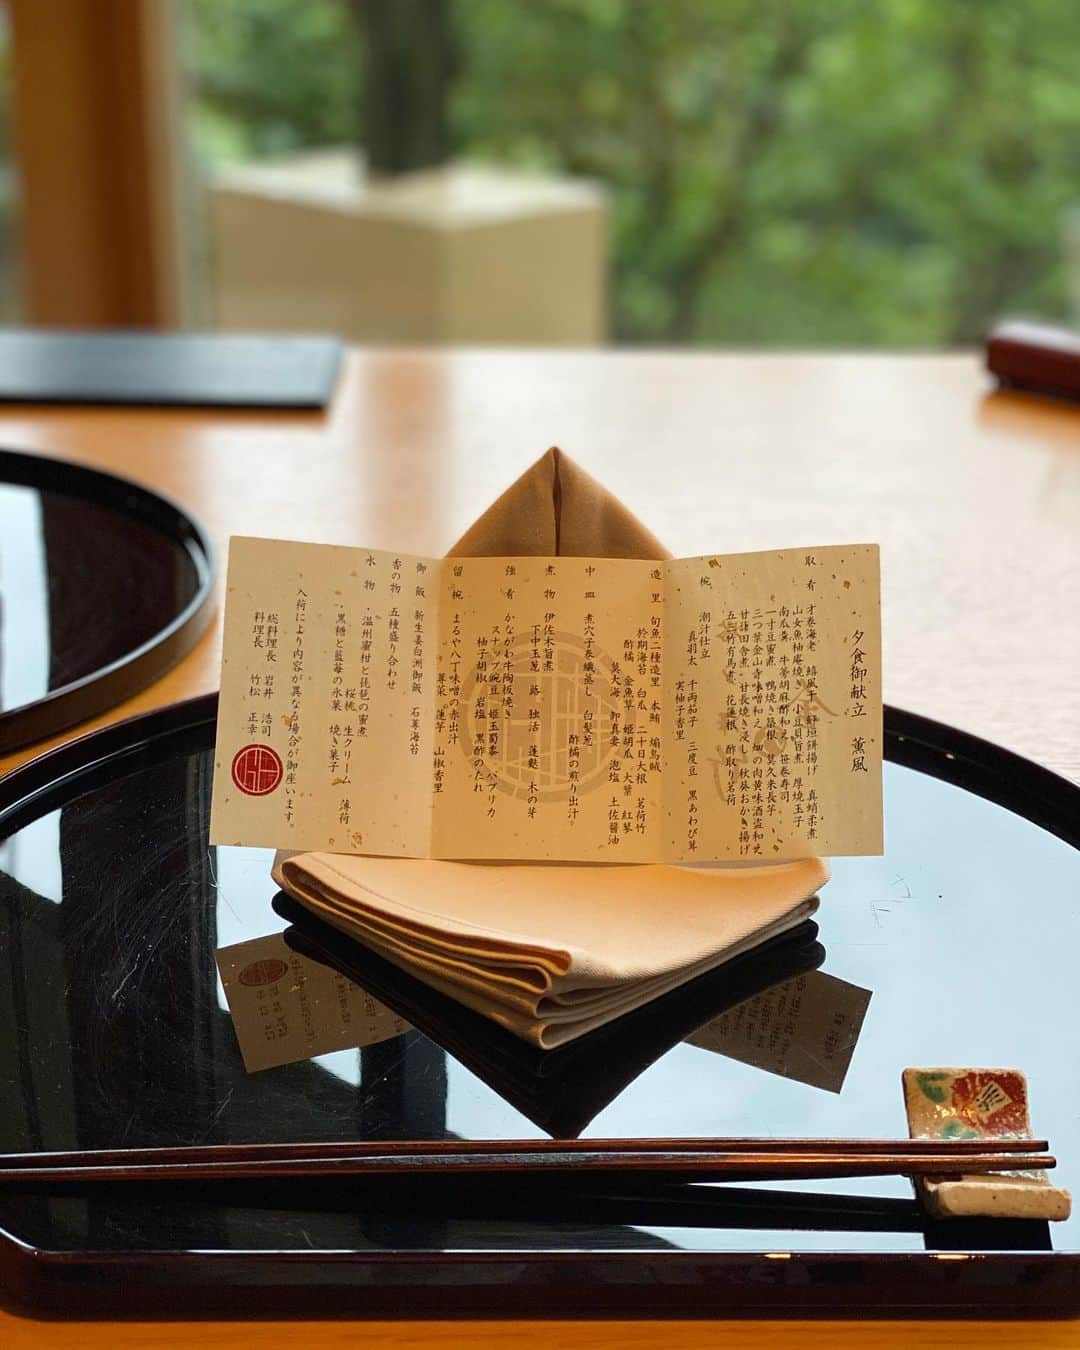 夕食御献立 薫風
取肴 才巻海老 嬉風干 鮃垣餅揚げ 真蛸柔煮
山女魚柚庵焼き 小豆貝旨煮 厚焼玉子
南瓜 牛蒡胡麻酢和え 笹巻寿司
一寸豆蜜煮 鴨焼き葱根 莫久来長芋
三つ葉金山寺味噌和え 畑の肉黄味酒盗和え
甘藷田舎煮 甘長焼き浸し 秋葵おかき揚げ
五三竹有馬煮 花蓮根 酢取り茗荷
椀 潮汁仕立
真羽太 千両茄子 三度豆 黒あわび茸
実柚子香里
造里 旬魚二種造里 本鮪 烏賊
於期海苔 白瓜 二十日大根 茗荷竹
酢橘 金魚草 姫胡瓜 大葉 紅蓼
莫大海 卸真妻 泡塩 土佐醤油
中皿 煮穴子巻繊蒸し 白髪葱
酢橘の煎り出汁。
煮物 伊佐木旨煮
下中玉葱 蕗 独活 蓬麩 木の芽
強肴 かながわ牛陶板焼き
スナップ豌豆 姫玉蜀黍 パプリカ
柚子胡椒 岩塩 黒酢のたれ
留椀 まるや八丁味噌の赤出汁
蓴菜。蓮芋 山椒香里
御飯 新生姜白洲御飯 石蓴海苔
香の物 五種盛り合わせ
水物 ・温州蜜柑と琵琶の蜜煮
桜桃 生クリーム 薄荷
・黒糖と藍苺の氷菓 焼き菓子
入荷により内容が異なる場合が御座います。
総料理長 岩井 浩司
料理長 竹松 正幸